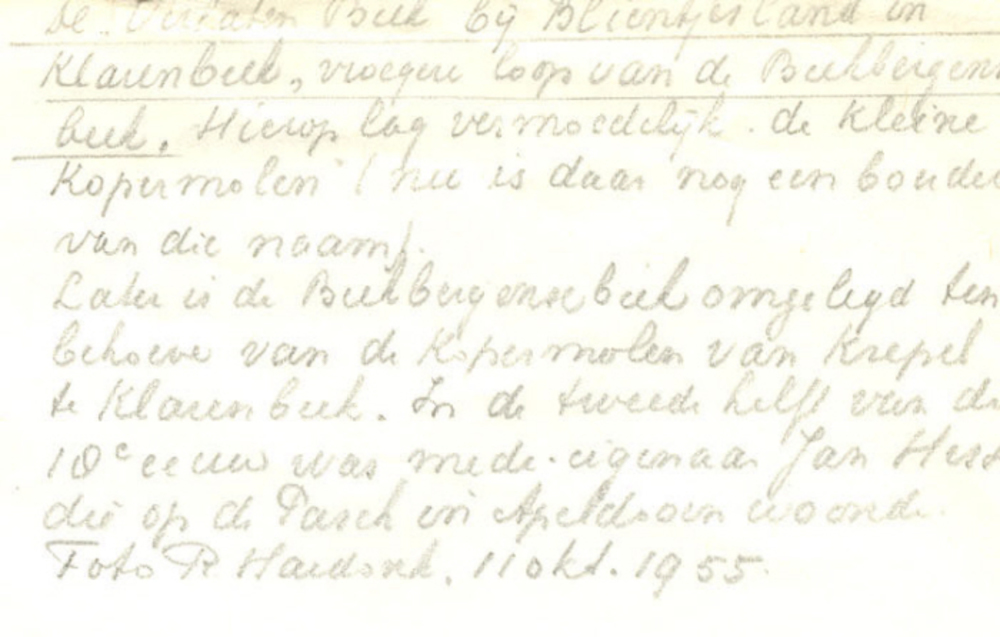 De Verlaten Beek bij Blientjesland in
Klarenbeek, vroegere loop van de Beekbergens
beek. Hierop lag vermoedelijk de kleine
Kopermolen (nu is daar nog een boerder
van die naam).
Later is de Beekbergense beek omgelegd ten
behoeve van de Kopermolen van Krepel
te Klarenbeek. In de tweede helft van de
18e eeuw was mede-eigenaar Jan Hess
die op de Pasch in Apeldoorn woonde.
Foto R Hardonk. 11 okt. 1955.